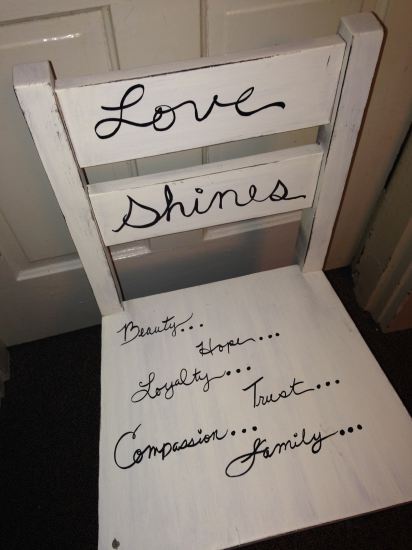 Love
Shines
Beauty...
Hope...
Loyalty...
Trust...
Compassion...
Family...